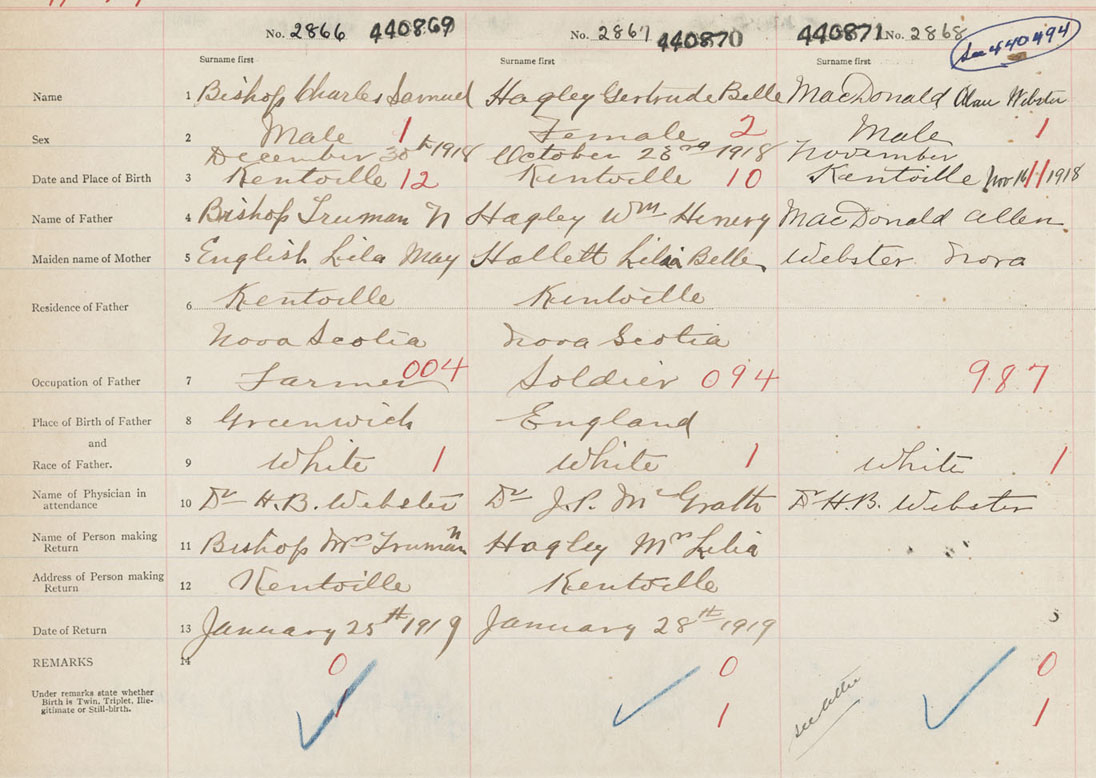 No. 2866 440869 No. 2867 440870 440871 No. 2868 See 440494
Surname first Surname first Surname first
Name 1 Bishop Charles Samuel Hagley Gertrude Belle MacDonald Alan Webster
Sex 2 Male 1 Female 2 Male 1
December 30th 1918 October 28rd 1918 November
Date and Place of Birth 3 Kentville 12 Kentville 10 Kentville Nov 16 11 1918
Name of Father 4 Bishop Truman N Hagley Wm Henery MacDonald Allen
Maiden name of Mother 5 English Lila May Hallett Lilia Belle Webster Nora
Residence of Father 6 Kentville Kentville
Nova Scotia Nova Scotia
Occupation of Father 7 Farmer 004 Soldier 094 987
Place of Birth of Father 8 Greenwich England
and
Race of Father. 9 White 1 White 1 White 1
Name of Physician in attendance 10 Dr H.B. Webster Dr J.P. McGrath Dr H.B. Webster
Name of Person making Return 11 Bishop Mrs Truman N Hagley Mrs Lilia
Address of Person making Return 12 Kentville Kentville
Date of Return 13 January 25th 1919 January 28th 1919
REMARKS 14 0 0 0
Under remarks state whether
Birth is Twin, Triplet, Ille-
gitimate or Still-birth. 1 1 see 1